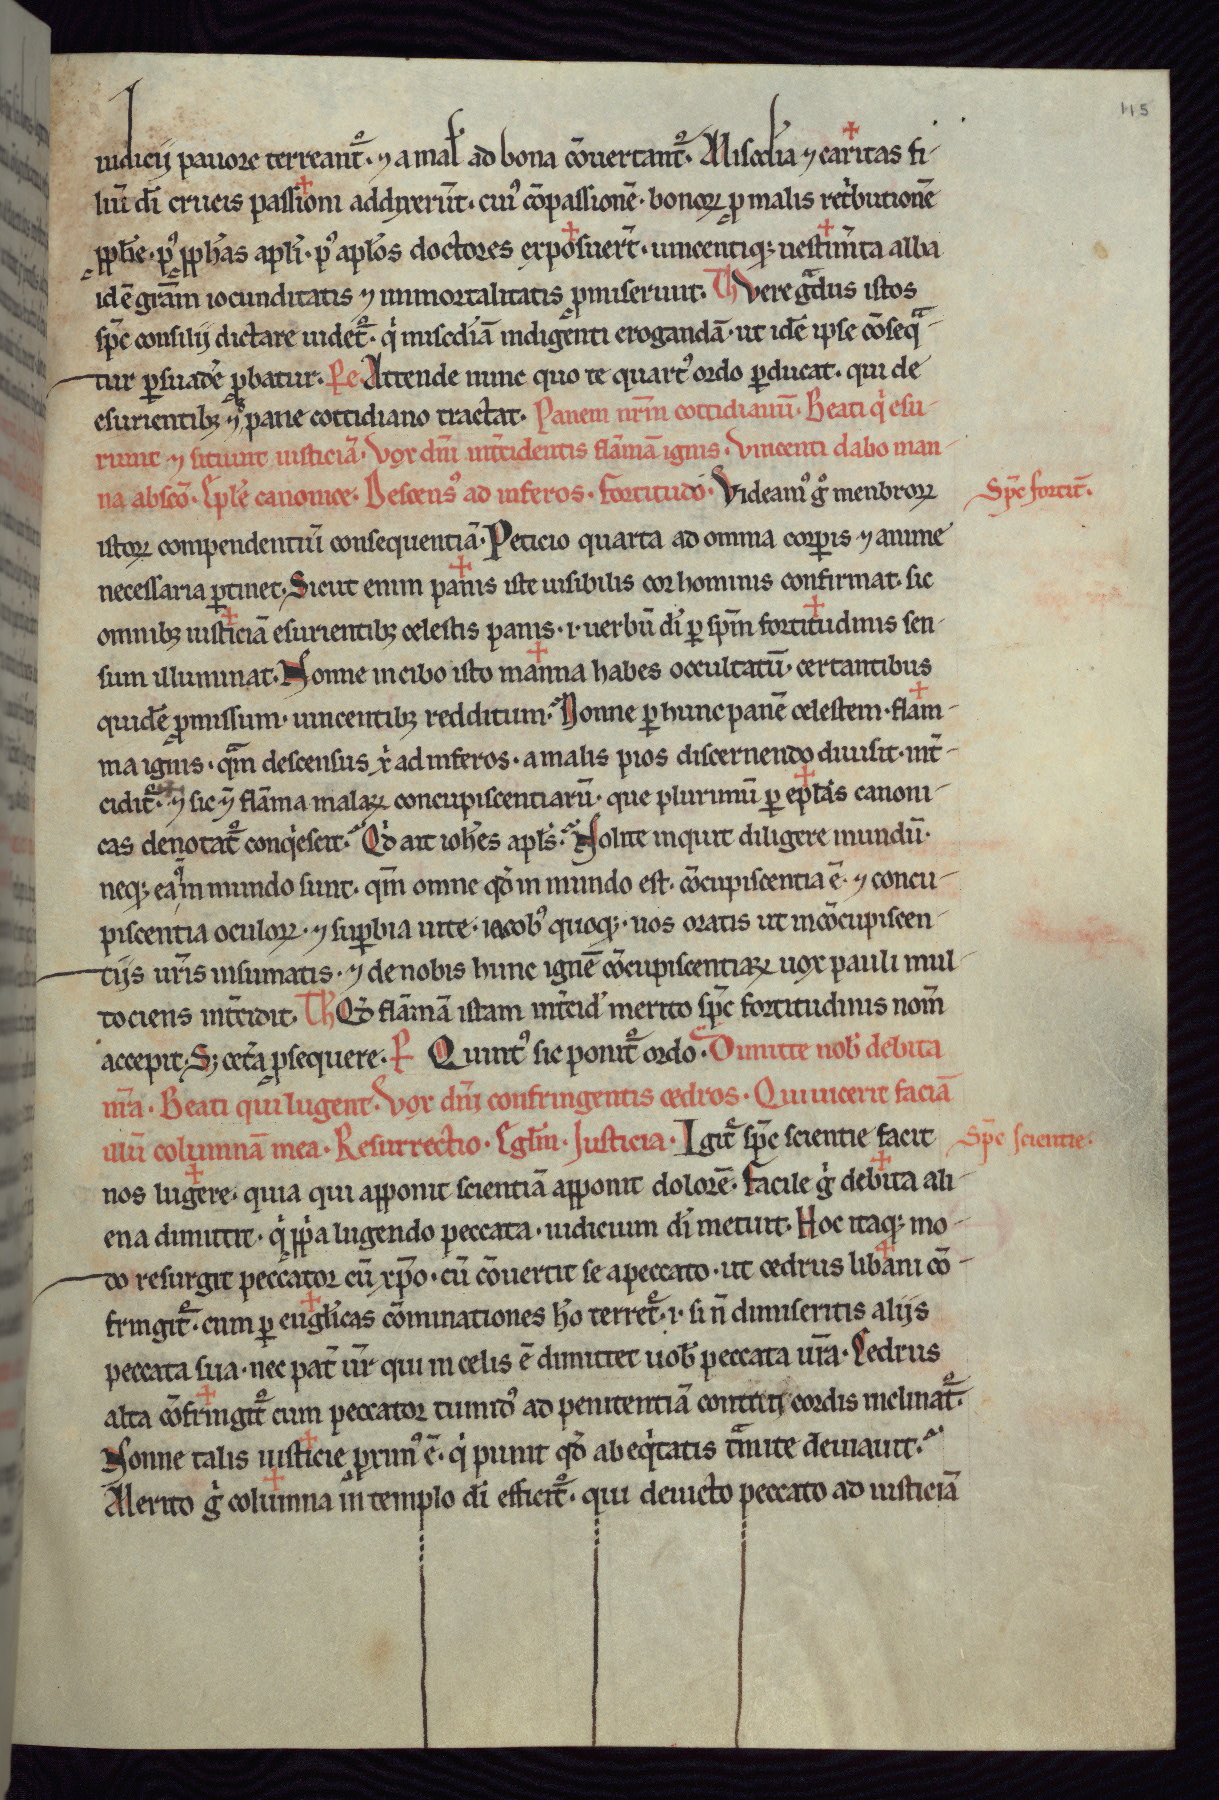 115
iudicij pauore terreant᷑. ⁊ a mał ad bona ꝯ̄uertant᷑. Misc̄dia ⁊ caritas fi-
liū di crucis passioni adduxerūt. cuiꝰ cō̄passionē. bonoꝝ ꝓ malis ret̓butionē
ꝓph̄e. pꝰ ꝓph̄as apl̄i. pꝰ apl̄os doctores exposuer̄t. uincentiqꝫ uestim̄ta alba
id ē gr̄am iocunditatis ⁊ inmortalitatis ꝓmiserunt. Th Vere gͣdus istos
sp̄c consilij dictare uidet᷑. qͥ misc̄diā indigenti erogandā. ut idē ipse cōseqͣ-
tur ꝑsuadē ꝓbatur. Re. Attende nunc quo te quartꝰ ordo ꝑducat. qui de
esurientibꝫ ⁊ pane cottidiano tractat. Panem nr̄m cottidianū. Beati qͥ esu-
riunt ⁊ sitiunt iusticiā. Vox dn̄i int̄cidentis flāmā ignis. Vincenti dabo man-
na abscō. Ep̄le canonice. Descensꝰ ad inferos. fortitudo. Videamꝰ gͦ menbroꝝ
Sp̄c fortit̄.
istoꝝ compendentiū consequentiā. Peticio quarta ad omnia corꝑis ⁊ anime
necessaria ꝑtinet. Sicut enim panis iste uisibilis cor hominis confirmat. sic
omnibꝫ iusticiā esurientibꝫ celestis panis. i. uerbū di ꝑ sp̄m fortitudinis sen-
sum illuminat. Nonne in cibo isto manna habes occultatū. certantibus
quidē ꝓmissum. uincentibꝫ redditum. Nonne ꝑ hunc panē celestem. flam-
ma ignis. qͣm descensus xͥ ad inferos. a malis pios discernendo diuisit. int̄-
cidit᷑. ⁊ sic ⁊ flāma malaꝝ concupiscentiarū. que plurimū ꝑ epl̄as canoni-
cas denotat᷑ conqͥescit. Qd̄ ait ioh̄es apl̄s. Nolite inquit diligere mundū.
neqꝫ ea q̄ in mundo sunt. qm̄ omne qd̄ in mundo est. cōcupiscentia ē. ⁊ concu-
piscentia oculoꝝ. ⁊ suꝑbia uite. iacobꝰ quoqꝫ. uos oratis ut in cōcupiscen-
tijs ur̄is insumatis. ⁊ de nobis hunc ignē cōcupiscentiaꝝ uox pauli mul-
tociens int̄cidit. Th Qd̄ flāmā istam int̄cid᷑ merito sp̄c fortitudinis nom̄
accepit. Sꝫ cet̄a ꝓsequere. R Quintꝰ sic ponit᷑ ordo. Dimitte nob̄ debita
nr̄a. Beati qui lugent. Vox dn̄i confringentis cedros. Qui uicerit faciā
illū columnā mea. Resurrectio. Eglm̄. Justicia. Igit᷑ sp̄c scientie facit
Sp̄c scientie.
nos lugere. quia qui apponit scientiā apponit dolorē. Facile gͦ debita ali-
ena dimittit. qͥ ꝓp̄a lugendo peccata. iudicium di metuit. Hoc itaqꝫ mo-
do resurgit peccator cū xp̄o. cū ꝯ̄uertit se a peccato. ut cedrus libani cō-
fringit᷑. cum ꝑ eugl̄icas cōminationes h̄o terret᷑. i. si n̄ dimiseritis alijs
peccata sua. nec pat̄ ur̄ qui in celis ē dimittet uob̄ peccata ur̄a. Cedrus
alta cōfringit᷑ cum peccator tumidꝰ ad penitentiā contriti cordis inclinat᷑.
Nonne talis iusticie proximꝰ ē. qͥ punit qd̄ ab eqͥtatis tͣmite deuiauit.
Merito gͦ columna in templo di efficit᷑. qui deuicto peccato ad iusticiā